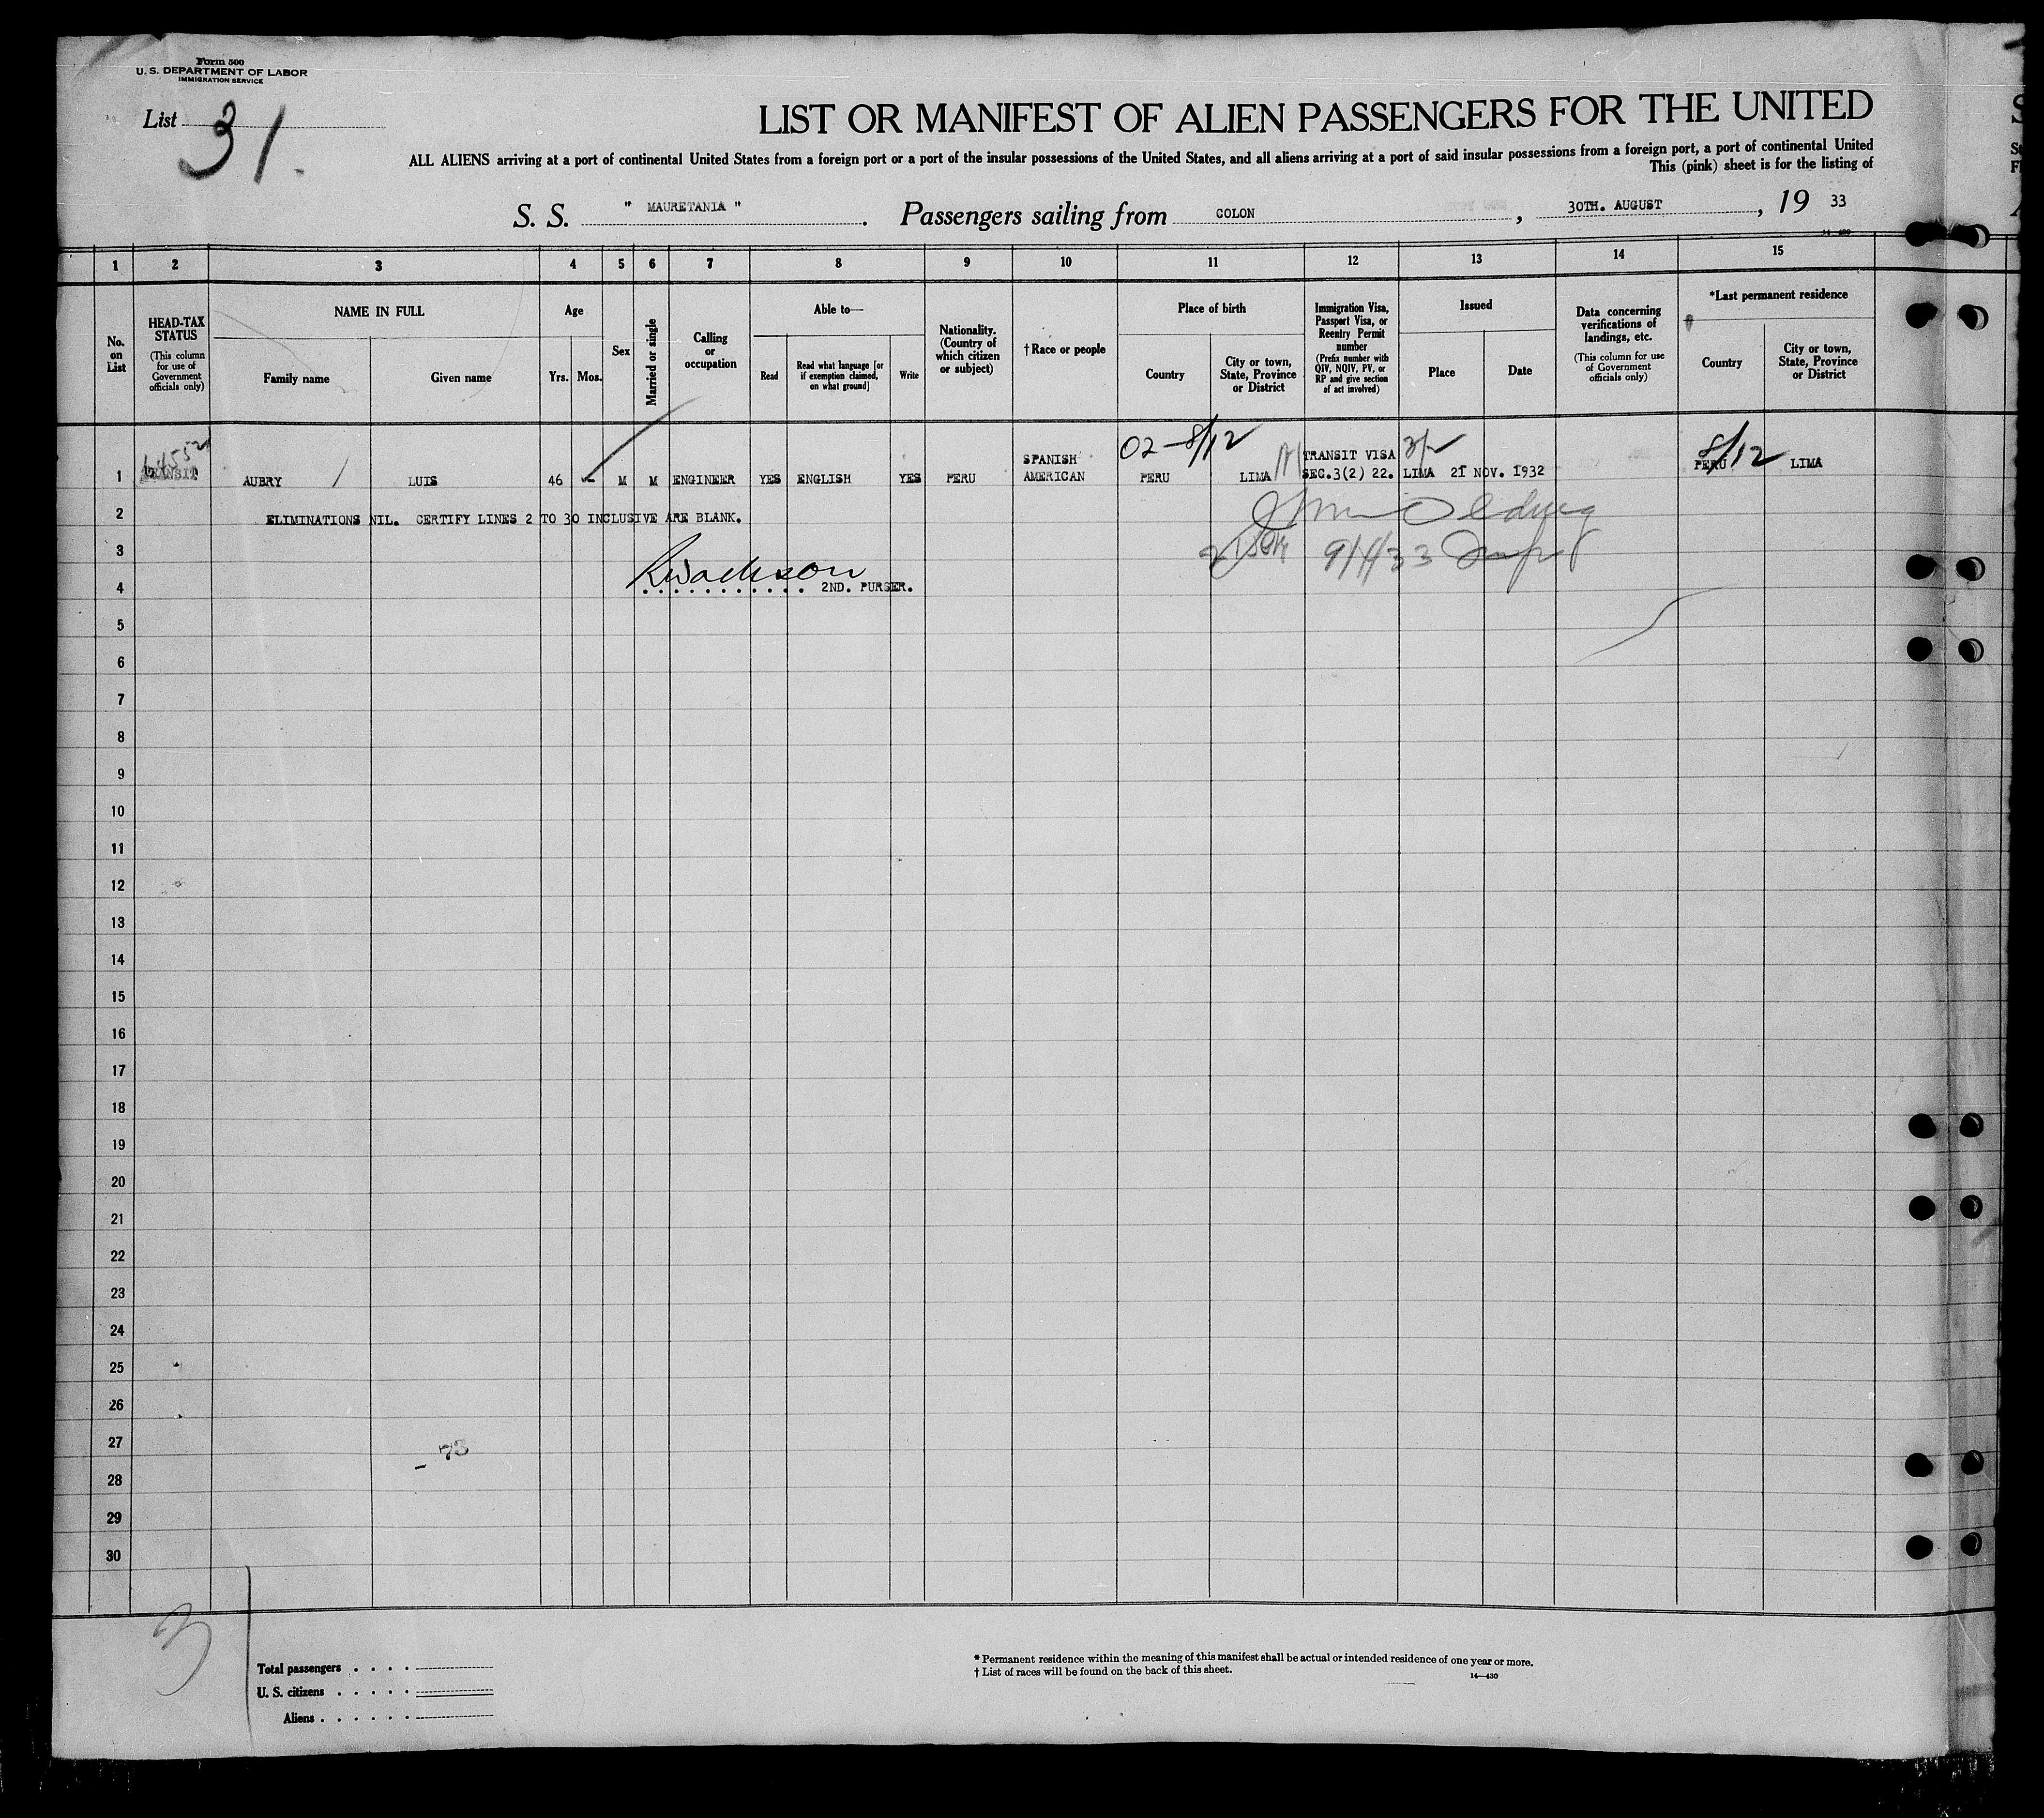 Form 500
U. S. DEPARTMENT OF LABOR
IMMIGRATION SERVICE
List 31.
LIST OR MANIFEST OF ALIEN PASSENGERS FOR THE UNITED
ALL ALIENS arriving at a port of continental United States from a foreign port or a port of the insular possessions of the United States, and all aliens arriving at a port of said insular possessions from a foreign port, a port of continental United
This (pink) sheet is for the listing of
S. S. " MAURETANIA ". Passengers sailing from COLON, 30TH. AUGUST, 19 33
14—430
1 2 3 4 5 6 7 8 9 10 11 12 13 14 15
No. on List
HEAD-TAX STATUS
(This column for use of Government officials only)
NAME IN FULL
Family name
Given name
Age
Yrs. Mos.
Sex
Married or single
Calling or occupation
Able to—
Read
Read what language [or if exemption claimed, on what ground]
Write
Nationality. (Country of which citizen or subject)
† Race or people
Place of birth
Country
City or town, State, Province or District
Immigration Visa, Passport Visa, or Reentry Permit number
(Prefix number with QIV, NQIV, PV, or RP and give section of act involved)
Issued
Place
Date
Data concerning verifications of landings, etc.
(This column for use of Government officials only)
*Last permanent residence
Country
City or town, State, Province or District
02-8/12
8/12
1 TRANSIT AUBRY LUIS 46 M M ENGINEER YES ENGLISH YES PERU SPANISH AMERICAN PERU LIMA TRANSIT VISA SEC.3(2) 22. LIMA 21 NOV. 1932 PERU LIMA
2 ELIMINATIONS NIL. CERTIFY LINES 2 TO 30 INCLUSIVE ARE BLANK.
3
4 2ND. PURSER.
5
6
7
8
9
10
11
12
13
14
15
16
17
18
19
20
21
22
23
24
25
26
27
- 73
28
29
30
3
Total passengers
U. S. citizens
Aliens
* Permanent residence within the meaning of this manifest shall be actual or intended residence of one year or more.
† List of races will be found on the back of this sheet.
14—430